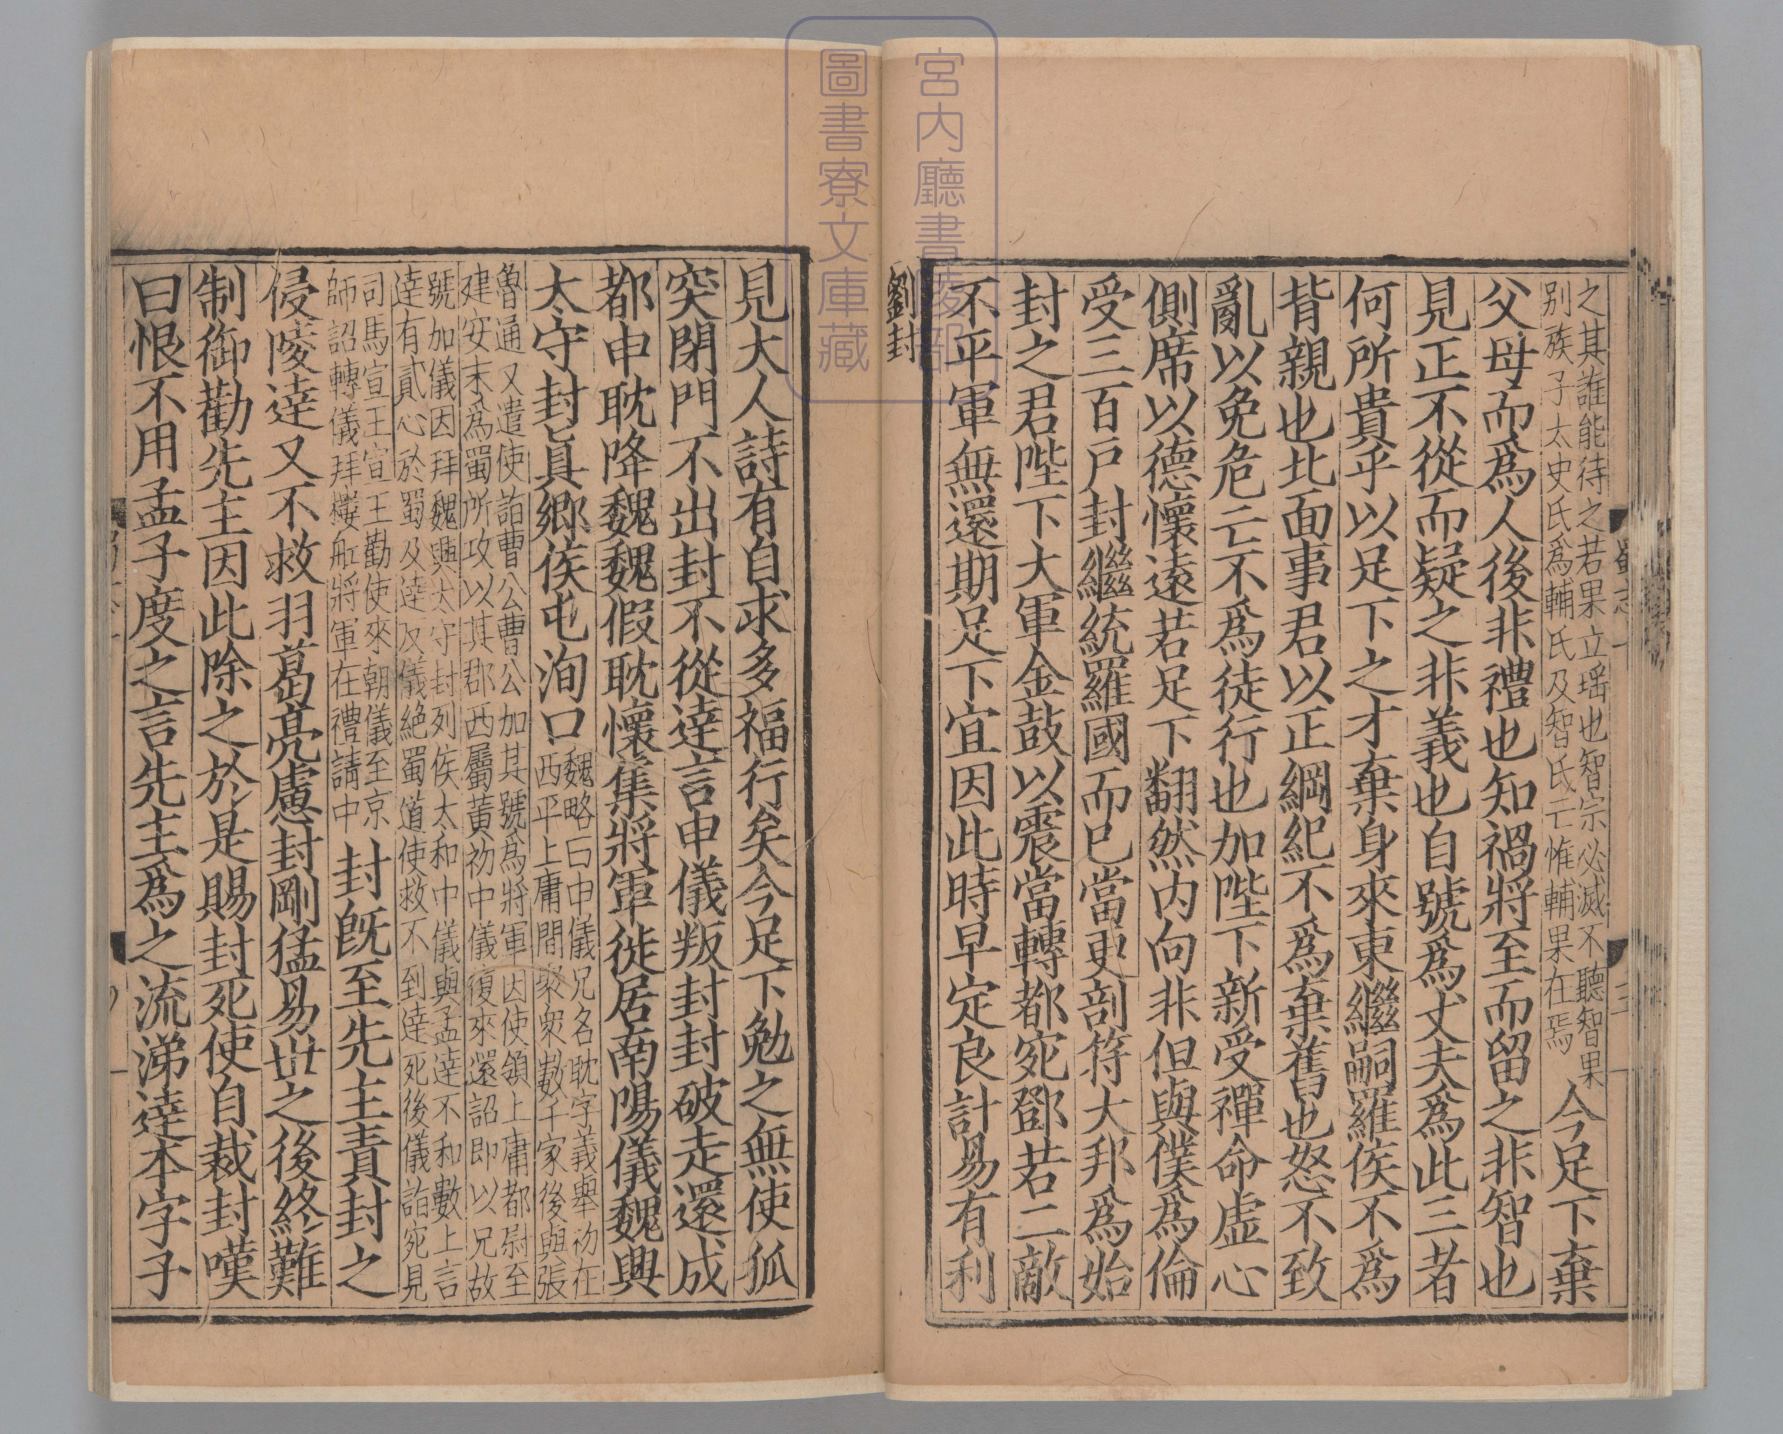 宮內廳書陵部
圖書寮文庫藏
之其誰能待之若果立瑶也智宗必滅不聽智果
别族子太史氏爲輔氏及智氏亡惟輔果在焉
今足下棄
父母而爲人後非禮也知禍將至而留之非智也
見正不從而疑之非義也自號爲丈夫爲此三者
何所貴乎以足下之才棄身來東繼嗣羅侯不爲
背親也北面事君以正綱紀不爲棄舊也怒不致
亂以免危亡不爲徒行也加陛下新受禪命虛心
側席以德懷遠若足下翻然内向非但與僕爲倫
受三百戶封繼統羅國而已當更剖符大邦爲始
封之君陛下大軍金鼓以震當轉都宛鄧若二敵
不平軍無還期足下宜因此時早定良計易有利
劉封
見大人詩有自求多福行矣今足下勉之無使狐
突閉門不出封不從達言申儀叛封封破走還成
都申耽降魏魏假耽懷集將軍徙居南陽儀魏興
太守封眞郷侯屯洵口
魏略曰申儀兄名耽字義舉初在
西平上庸間聚衆數千家後與張
魯通又遣使詣曹公曹公加其號爲將軍因使領上庸都尉至
建安末爲蜀所攻以其郡西屬黄初中儀復來還詔即以兄故
號加儀因拜魏興太守封列侯太和中儀與孟達不和數上言
達有貳心於蜀及達反儀絶蜀道使救不到達死後儀詣宛見
司馬宣王宣王勸使來朝儀至京
師詔轉儀拜樓舩將軍在禮請中
封旣至先主責封之
侵陵達又不救羽葛亮慮封剛猛易世之後終難
制御勸先主因此除之於是賜封死使自裁封嘆
曰恨不用孟子度之言先主爲之流涕達本字子